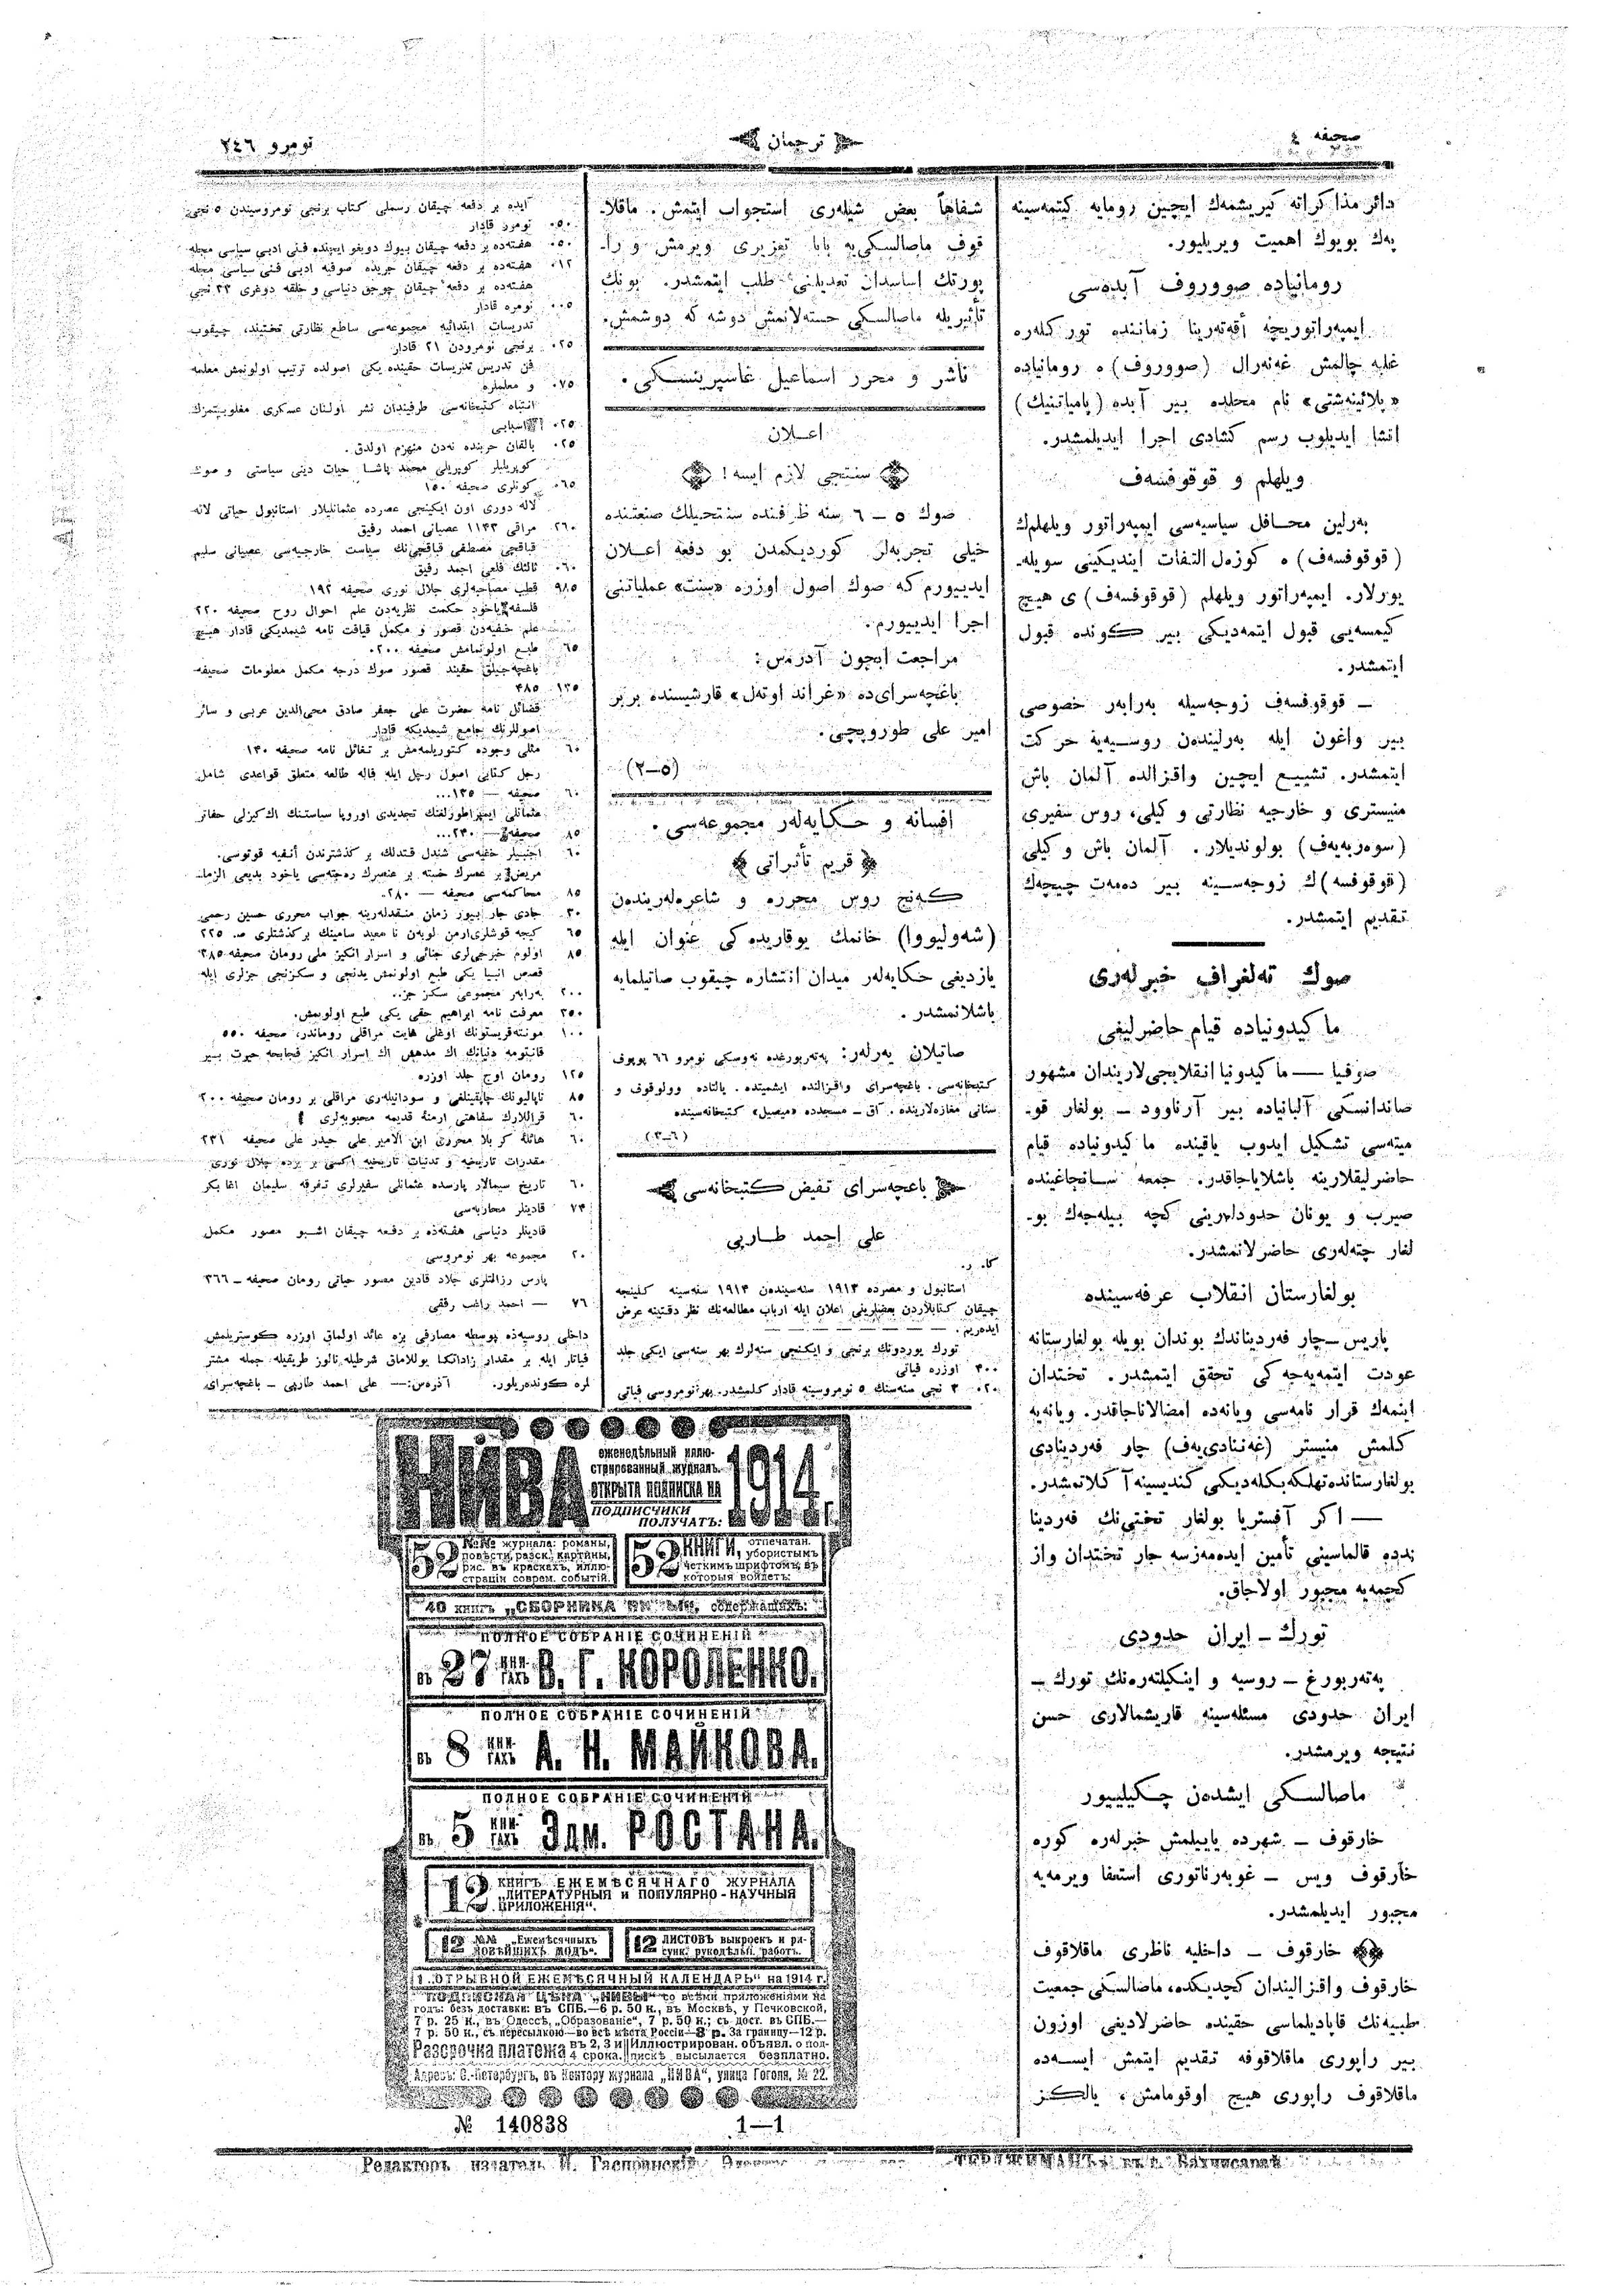 صحیفه ٤
ترجمان
نومرو ٢٤٦
دائر مذاكراته كیریشمه‌ك ایچین رومایه كیتمه‌سینه
په‌ك بویوك اهمیت ویریلیور.
رومانیاده صووروف آبده‌سی
ایمپه‌راتوریچه أقه‌ته‌رینا زماننده توركلره
غلبه چالمش غه‌نه‌رال (صووروف)ه رومانیاده
«پلائینه‌شتی» نام محلده بیر آبده (پامیاتنیك)
انشا ایدیلوب رسم كشادی اجرا ایدیلمشدر.
ویلهلم و قوقوفسه‌ف
به‌رلین محافل سیاسیه‌سی ایمپه‌راتور ویلهلم‌ك
(قوقوفسه‌ف)ه كوزه‌ل التفات ایتدیكینی سویله‌ـ
یورلار. ایمپه‌راتور ویلهلم (قوقوفسه‌ف)ی هیچ
كیمسه‌یی قبول ایتمه‌دیكی بیر كونده قبول
ایتمشدر.
ـ قوقوفسه‌ف زوجه‌سیله به‌رابه‌ر خصوصی
بیر واغون ایله به‌رلیندن روسیه‌یه حركت
ایتمشدر. تشییع ایچین واقزالده آلمان باش
منیستری و خارجیه نظارتی وكیلی، روس سفیری
(سوه‌ربه‌یه‌ف) بولوندیلار. آلمان باش وكیلی
(قوقوفسه)ك زوجه‌سینه بیر ده‌مه‌ت چیچه‌ك
تقدیم ایتمشدر.
صوك ته‌لغراف خبرله‌ری
ماكیدونیاده قیام حاضرلیغی
صوفیا — ماكیدونیا انقلابجی‌لاریندان مشهور
صاندانسكی آلبانیاده بیر آرناوود ـ بولغار قوـ
میته‌سی تشكیل ایدوب یاقینده ماكیدونیاده قیام
حاضرلیقلارینه باشلایاجاقدر. جمعه سانجاغینده
صیرب و یونان حدودلرینی كچه بیله‌جه‌ك بوـ
لغار چته‌له‌ری حاضرلانمشدر.
بولغارستان انقلاب عرفه‌سینده
پاریس ـ چار فه‌ردیناندك بوندان بویله بولغارستانه
عودت ایتمه‌یه‌جه‌كی تحقق ایتمشدر. تختدان
اینمه‌ك قرار نامه‌سی ویانه‌ده امضالاناجاقدر. ویانه‌یه
كلمش منیستر (غه‌ننادی‌یه‌ف) چار فه‌ردینادی
بولغارستانده تهلكه بكله‌دیكی كندیسینه آكلاتمشدر.
— اكر آفستریا بولغار تختی‌نك فه‌ردینا
ندده قالماسینی تأمین ایده‌مه‌زسه چار تختدان واز
كچمه‌یه مجبور اولاجاق.
تورك ـ ایران حدودی
په‌ته‌ربورغ ـ روسیه و اینكیلته‌ره‌نك تورك ـ
ایران حدودی مسئله‌سینه قاریشمالاری حسن
نتیجه ویرمشدر.
ماصالسكی ایشده‌ن چكیلییور
خارقوف ـ شهرده یاییلمش خبرله‌ره كوره
خارقوف ویس ـ غوبه‌رناتوری استعفا ویرمه‌یه
مجبور ایدیلمشدر.
خارقوف ـ داخلیه ناظری ماقلاقوف
خارقوف واقزالیندان كچدیكده، ماصالسكی جمعیت
طبیه‌نك قاپادیلماسی حقینده حاضرلادیغی اوزون
بیر راپوری ماقلاقوفه تقدیم ایتمش ایسه‌ده
ماقلاقوف راپوری هیچ اوقومامش، یالكز
شفاهاً بعض شیله‌ری استجواب ایتمش. ماقلاـ
قوف ماصالسكی‌یه بابا تعزیری ویرمش و راـ
پورتك اساسدان تعدیلنی طلب ایتمشدر. بونك
تأثیریله ماصالسكی خسته‌لانمش دوشه‌كه دوشمش.
ناشر و محرر اسماعیل غاسپرینسكی.
اعـلان
سنتجی لازم ایسه!
صوك ٥ ـ ٦ سنه ظرفنده سنتجیلك صنعتنده
خیلی تجربه‌لر كوردیكمدن بو دفعه اعـلان
ایدییورم كه صوك اصول اوزره «سنت» عملیاتنی
اجرا ایدییورم.
مراجعت ایچون آدرس:
باغچه‌سرای‌ده «غراند اوته‌ل» قارشیسنده بربر
امیر علی طوروپچی.
(٥ـ٢)
افسانه و حـكایه‌له‌ر مجموعه‌سی.
قریم تأثراتی
كه‌نج روس محرره و شاعره‌له‌ریندن
(شه‌ولیووا) خانمك یوقاریده‌كی عنوان ایله
یازدیغی حكایه‌له‌ر میدان انتشاره چیقوب صاتیلمایه
باشلانمشدر.
صاتیلان یه‌رله‌ر: په‌ته‌ربورغده نه‌وسكی نومرو ٦٦ پوپوف
كتبخانه‌سی. باغچه‌سرای واقزالنده ایشمیتده. یالتاده وولوقوف و
سنانی مغازه‌لارینده. آق ـ مسجدده «میصیل» كتبخانه‌سینده
(٦ـ٣)
باغچه‌سرای تفیض كتبخانه‌سی
علی احمد طـارپی
استانبول و مصرده ١٩١٣ سنه‌سیندن ١٩١٤ سنه‌سینه كلینجه
چیقان كتابلاردن بعضلرینی اعلان ایله ارباب مطالعه‌نك نظر دقتینه عرض
ایده‌ریم.
تورك یوردونك برنجی و ایكنجی سنه‌لرك بهر سنه‌سی ایكی جلد
اوزره فیاتی ٤٠٠
٣ نجی سنه‌سنك ٥ نومروسینه قادار كلمشدر. بهر نومروسی فیاتی ٠٢٠
ایده بر دفعه چیقان رسملی كتاب برنجی نومروسیندن ٥ نجی
نومره قادار ٠٥٠
هفته‌ده بر دفعه چیقان بیوك دویغو ایچنده فنی ادبی سیاسی مجله ٠٥٠
هفته‌ده بر دفعه چیقان جریده صوفیه ادبی فنی سیاسی مجله ٠١٢
هفته‌ده بر دفعه چیقان چوجق دنیاسی و خلقه دوغری ٢٣ نجی
نومره قادار ٠٠٥
تدریسات ابتدائیه مجموعه‌سی ساطع نظارتی تختینده، چیقوب
برنجی نومرودن ٢١ قادار ٠٢٥
فن تدریس تدریسات حقینده یكی اصولده ترتیب اولونمش معلمه
و معلملره ٠٧٥
انتباه كتبخانه‌سی طرفیندان نشر اولنان عسكری مغلوبیتمزك
اسبابی ٠٢٥
بالقان حربنده نه‌دن منهزم اولدق. ٠٢٥
كوپریلیلر كوپریلی محمد پاشـا حیات دینی سیاستی و صوك
كونلری صحیفه ١٥٠ ٠٦٥
لاله دوری اون ایكینجی عصرده عثمانلیلار استانبول حیاتی لاله
مراقی ١١٤٣ عصیانی احمد رفیق ٢٦٠
قباقچی مصطفی قباقچی‌نك سیاست خارجیه‌سی عصیانی سلیم
ثالثك قلعی احمد رفیق ٠٦٠
قطب مصاحبه‌لری جلال نوری صحیفه ١٩٢ ٩٨٥
فلسفه یاخود حكمت نظریه‌دن علم احوال روح صحیفه ٢٢٠
علم خفیه‌دن قصور و مكمل قیافت نامه شیمدیكی قادار هیـچ
طبع اولونمامش صحیفه ٢٠٠ ٠٦٥
باغچه‌جیلق حقیند قصور صوك درجه مكمل معلومات صحیفه
٤٨٥ ١٢٥
فضائل نامه حضرت علی جعفر صادق محی‌الدین عربی و سائر
اصوللرنك جامع شیمدیكه قادار
مثلی وجوده كتوریلمه‌مش بر تفائل نامه صحیفه ١٣٠ ٦٠
رجل كتابی اصول رجل ایله فاله طالعه متعلق قواعدی شامل
صحیفه — ١٢٥... ٦٠
عثمانلی ایمپراطورلغنك تجدیدی اوروپا سیاستنك اك كیزلی حفاتر
صحیفه — ٢٣٠... ٨٥
محاكمه‌سی صحیفه — ٢٨٠. ٨٥
جادی چار بیور زمان منقدله‌رینه جواب محرری حسین رحمی ٣٠
اولوم خبرجی‌لری جنائی و اسرار انكیز ملی رومان صحیفه ٣٨٥ ٨٥
قصص انبیا یكی طبع اولونمش یدنجی و سكزنجی جزلری ایله
به‌رابه‌ر مجموعی سكز جز.. ٢٠٠
معرفت نامه ابراهیم حقی یكی طبع اولونمش. ٣٥٠
مونته‌قریستونك اوغلی هایت مراقلی روماندر، صحیفه ٥٥٠ ١٠٠
فانتومه دنیانك اك مدهش اك اسرار انكیز فجایعه حیرت بـیر
رومان اوچ جلد اوزره ١٢٥
ناپالیونك چاپقینلغی و سودالیله‌ری مراقلی بر رومان صحیفه ٢٠٠ ٨٥
قراللارك سفاهتی ازمنهٔ قدیمه محبوبه‌لری ٦٠
هائلهٔ كربلا محرری ابن الامیر علی حیدر علی صحیفه ٢٣١ ٦٠
مقدرات تاریخیه و تدنیات تاریخیه اكسی بر یزده جلال نوری
تاریخ سیمالار پارسده عثمانلی سفیرلری تفرقه سلیمان اغا بكر ٦٠
قادینلر محاربه‌سی ٧٤
قادینلر دنیاسی هفته‌ده بر دفعه چیقان اشـبو مصور مكمل
مجموعه بهر نومروسی ٢٠
پارس رزالتلری جلاد قادین مصور حیاتی رومان صحیفه ـ ٣٦٦
— احمد راغب رفقی ٧٦
داخلی روسیه‌ده پوسطه مصارفی بزه عائد اولماق اوزره كوستریلمش
فیاتلر ایله بر مقدار زاداتكا یوللاماق شرطیله نالوژ طریقیله جمله مشتر
لره كونده‌ریلور. آدره‌س:— علی احمد طارپی ـ باغچه‌سرای
НИВА
еженедѣльный иллю-
стрированный журналъ.
ОТКРЫТА ПОДПИСКА НА
ПОДПИСЧИКИ
ПОЛУЧАТЪ:
1914 г.
52 №№ журнала: романы,
повѣсти, разск., картины,
рис. въ краскахъ, иллю-
страціи соврем. событій.
52 КНИГИ, отпечатан.
убористымъ
четкимъ шрифтомъ, въ
которыя войдетъ:
40 книгъ „СБОРНИКА НИВЫ“, содержащихъ:
ПОЛНОЕ СОБРАНІЕ СОЧИНЕНІЙ
въ 27 КНИ-ГАХЪ В. Г. КОРОЛЕНКО.
ПОЛНОЕ СОБРАНІЕ СОЧИНЕНІЙ
въ 8 КНИ-ГАХЪ А. Н. МАЙКОВА.
ПОЛНОЕ СОБРАНІЕ СОЧИНЕНІЙ
въ 5 КНИ-ГАХЪ Эдм. РОСТАНА.
12 КНИГЪ ЕЖЕМѢСЯЧНАГО ЖУРНАЛА
„ЛИТЕРАТУРНЫЯ и ПОПУЛЯРНО-НАУЧНЫЯ
ПРИЛОЖЕНІЯ“.
12 №№ „Ежемѣсячныхъ
новѣйшихъ модъ“.
12 ЛИСТОВЪ выкроекъ и ри-
сунк. рукодѣльн. работъ.
1 „ОТРЫВНОЙ ЕЖЕМѢСЯЧНЫЙ КАЛЕНДАРЬ“ на 1914 г.
ПОДПИСНАЯ ЦѢНА „НИВЫ“ со всѣми приложеніями на
годъ: безъ доставки: въ СПБ.—6 р. 50 к., въ Москвѣ, у Печковской,
7 р. 25 к., въ Одессѣ, „Образованіе“, 7 р. 50 к.; съ дост. въ СПБ.—
7 р. 50 к., съ пересылкою—во всѣ мѣста Россіи—8 р. За границу—12 р.
Разсрочка платежа въ 2, 3 и
4 срока.
Иллюстрирован. объявл. о под-
пискѣ высылается безплатно.
Адресъ: С.-Петербургъ, въ Контору журнала „НИВА“, улица Гоголя, № 22.
№ 140838 1—1
Редакторъ издатель И. Гаспринскій. ТЕРДЖИМАНЪ въ г. Бахчисараѣ